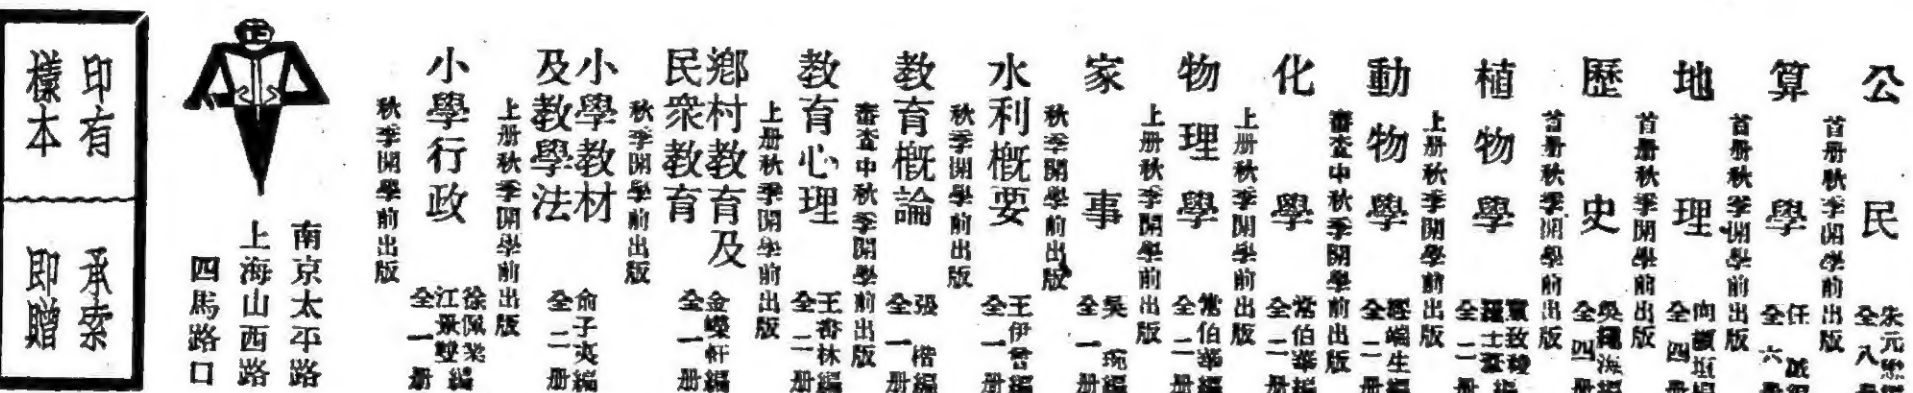 公民
朱元懋編
全八冊
首册秋季開學前出版
算學
任誠編
全六冊
首册秋季開學前出版
地理
向顗垣編
全四册
首册秋季開學前出版
歷史
吳繩海編
全四册
首册秋季開學前出版
植物學
全二册
上册秋季開學前出版
動物學
全二册
審查中秋季開學前出版
化學
常伯華編
全二册
上册秋季開學前出版
物理學
常伯華編
全二册
上册秋季開學前出版
家事
吳琬編
全一册
秋季開學前出版
水利概要
王伊曾編
全一册
秋季開學前出版
教育概論
張楷編
全一册
審查中秋季開學前出版
教育心理
王喬林編
全二册
上册秋季開學前出版
鄉村教育及
民衆教育
金嶸軒編
全一册
秋季開學前出版
小學教材
及教學法
俞子夷編
全二册
上册秋季開學前出版
小學行政
徐佩業
江景雙編
全一册
秋季開學前出版
南京太平路
上海山西路
四馬路口
印有
樣本
承索
即贈